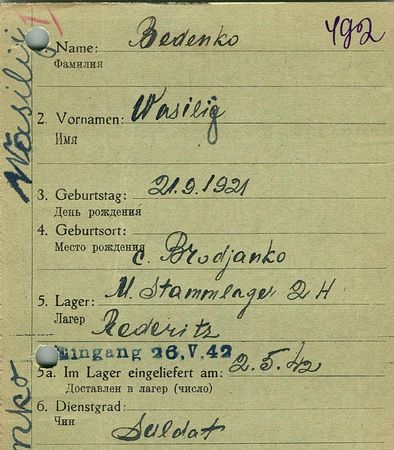 1. Name: Bedenko 492
Фамилия
Wasilij
2. Vornamen: Wasilij
Имя
3. Geburtstag: 21.9.1921
День рождения
4. Geburtsort:
Место рождения c. Brodjanko
5. Lager: M. Stammlager 2 H
Лагер Rederitz
Eingang 26.V.42
5a. Im Lager eingeliefert am: 2.5.42
Доставлен в лагер (число)
6. Dienstgrad:
Чин Soldat
nko